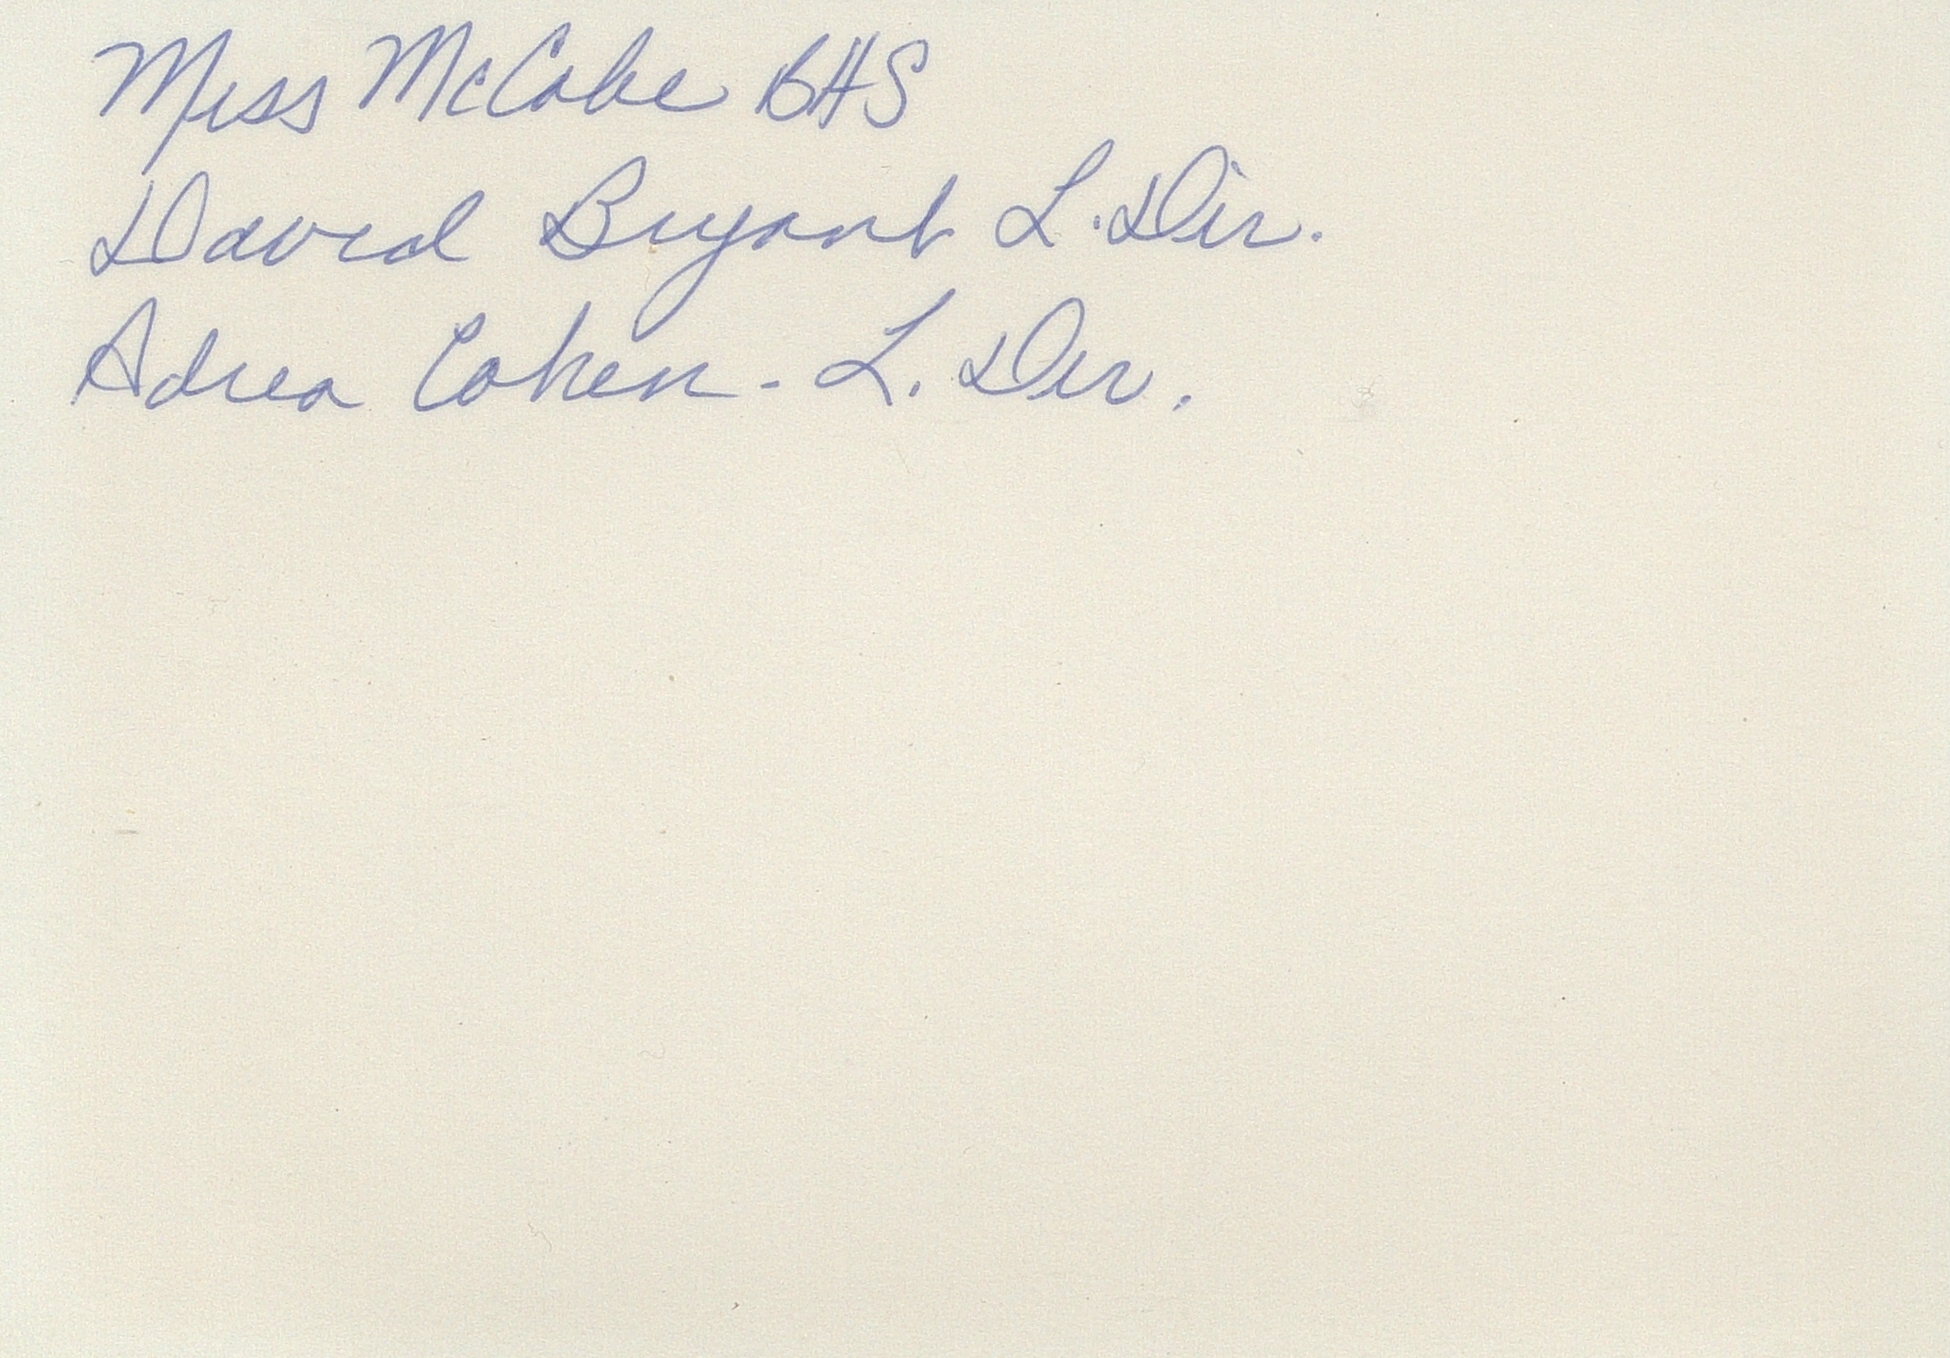 Miss McCabe BHS
David Bryant L. Dir.
Adrea Cohen - L. Dir.